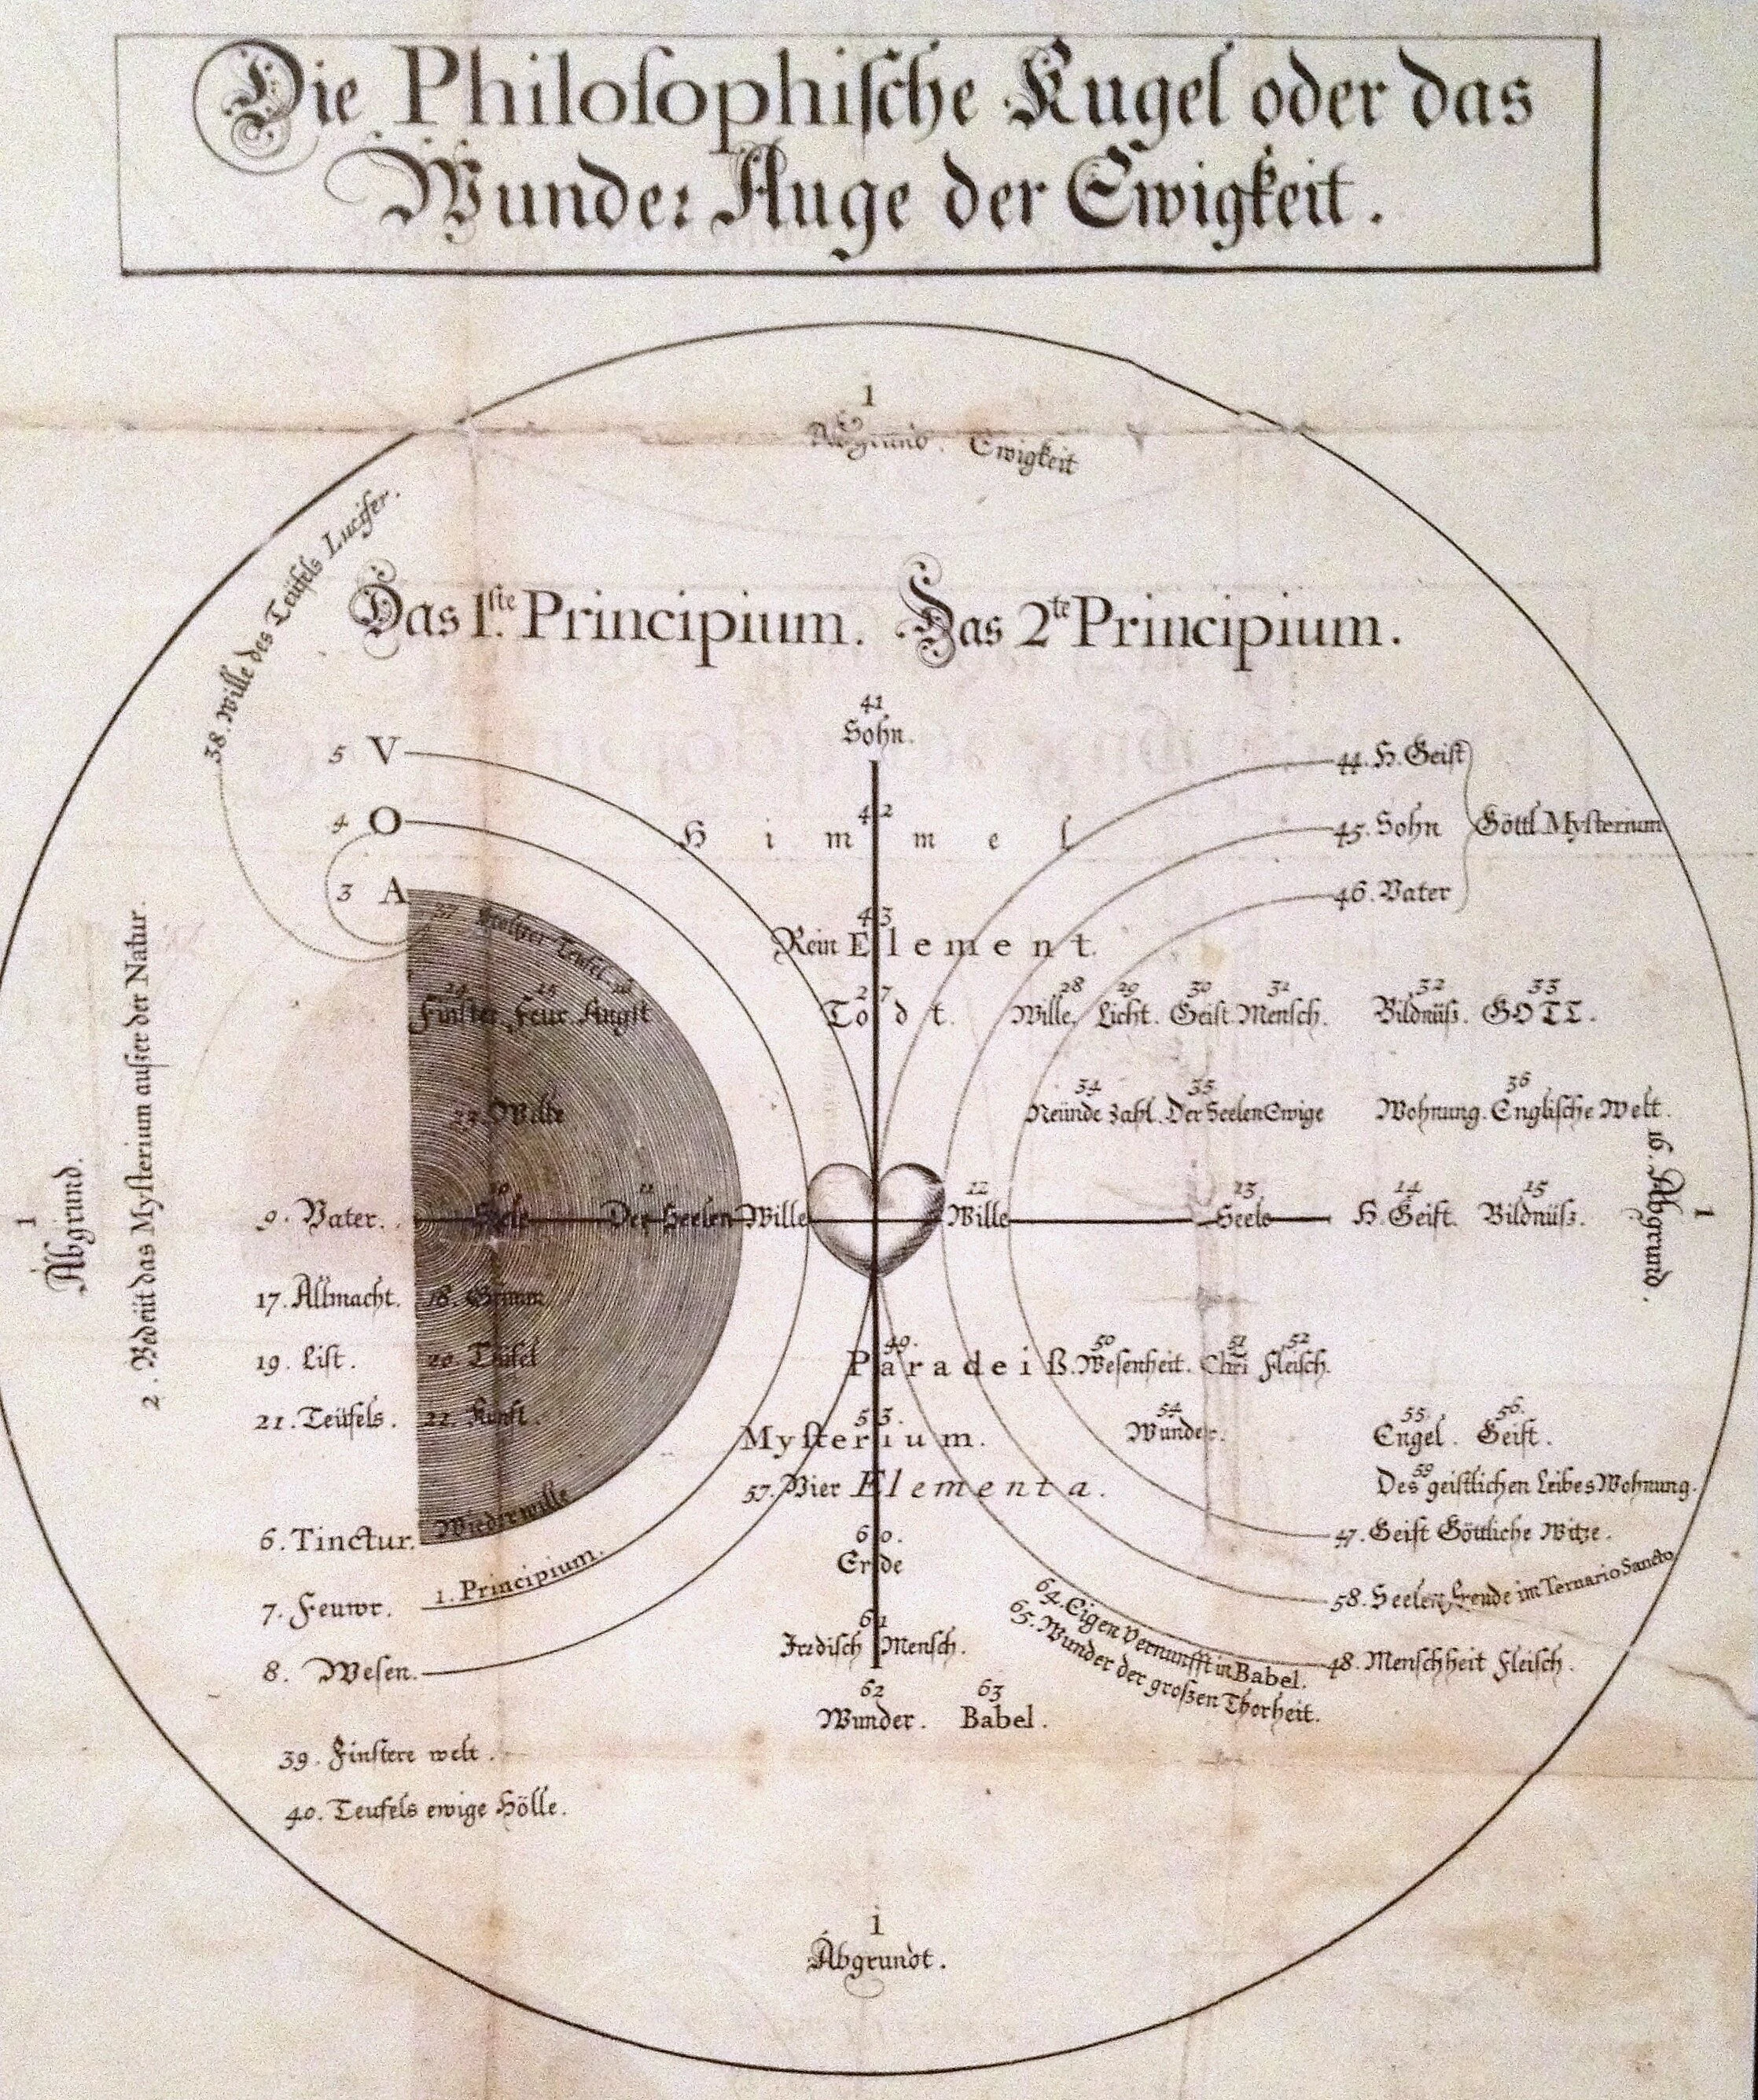 Die Philosophische Kugel oder das
Wunder Auge der Ewigkeit.
1
Abgrund. Ewigkeit
38. Wille des Teüfels Lucifer.
Das 1.ste Principium. Das 2te Principium.
41
Sohn.
5 V
44. H. Geist
4 O
42
Himmel
45. Sohn
Göttl. Mysterium
3 A
46. Vater
37 Stoltzer Teufel.
43
Rein Element.
24 25 26
Finster Feur. Angst
27
Todt.
28 29 30 31 32 33
Wille. Licht. Geist. Mensch. Bildnüß. GOTT.
34 35 36
Neünde Zahl. Der Seelen Ewige Wohnung. Englische Welt.
23. Welte
1
Abgrund.
2. Bedeüt das Mysterium außer der Natur.
9. Vater.
10
Seele
11
Der Seelen Wille
12
Wille
13
Seele
14
H. Geist.
15
Bildnüß.
16. Abgrund.
1
17. Allmacht. 18. Grimm
19. List. 20. Teüfel
21. Teüfels. 22. Kunst.
49. 50 51 52
Paradeiß. Wesenheit. Chri Fleisch.
53.
Mysterium.
54
Wunder.
55. 56.
Engel. Geist.
57. Vier Elementa.
59
Des geistlichen Leibes Wohnung.
Wiederwille
6. Tinctur.
47. Geist Göttliche Witze.
60.
Erde
1. Principium.
7. Feuwr.
58. Seelen Freude im Ternario Sancto
61
Irrdisch Mensch.
64. Eigen Vernunfft in Babel.
65. Wunder der großen Thorheit.
8. Wesen.
48. Menschheit Fleisch.
62 63
Wunder. Babel.
39. Finstere welt.
40. Teufels ewige Hölle.
1
Abgrundt.